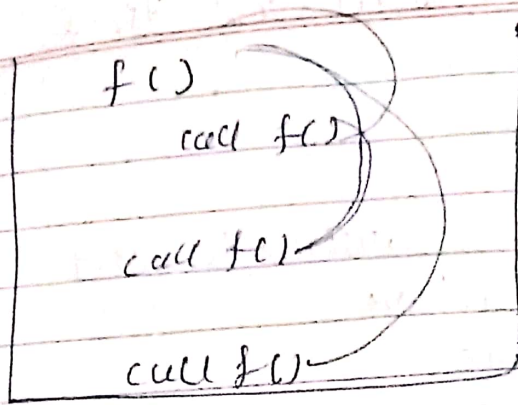 f()
call f()
call f()
call f()